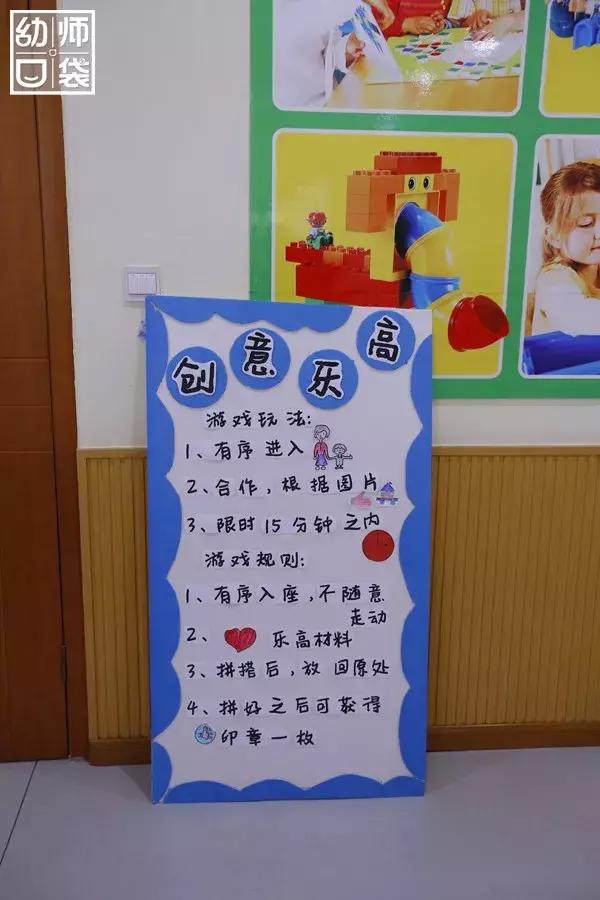 幼师口袋
创意乐高
游戏玩法:
1、有序进入
2、合作,根据图片
3、限时15分钟之内
游戏规则:
1、有序入座,不随意
走动
2、乐高材料
3、拼搭后,放回原处
4、拼好之后可获得
印章一枚